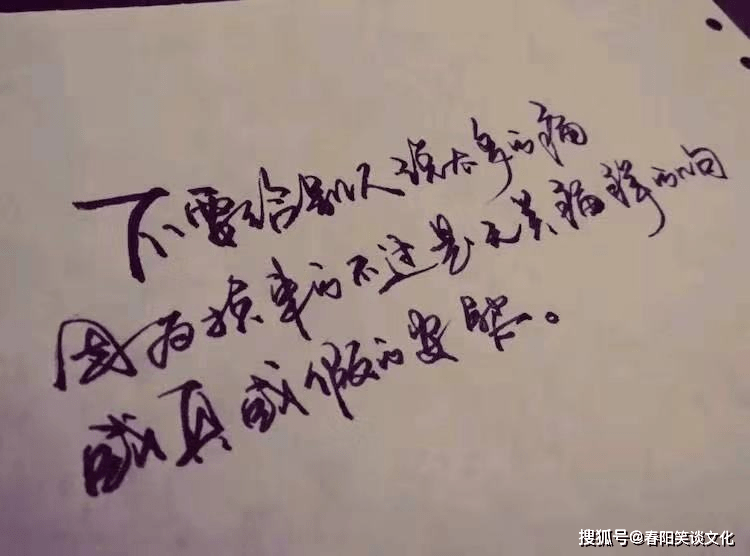 不要给别人说太多的痛
因为换来的不过是无关痛痒的问
或真或假的安慰。
搜狐号@春阳笑谈文化